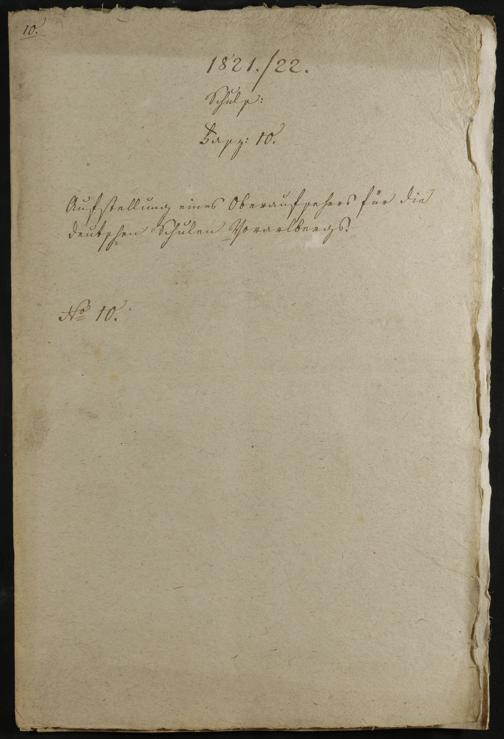 10.
1821./22.
Schulz:
Fasz: 10.
Aufstellung eines Oberaufsehers für die
deutschen Schulen Vorarlbergs.
No 10.